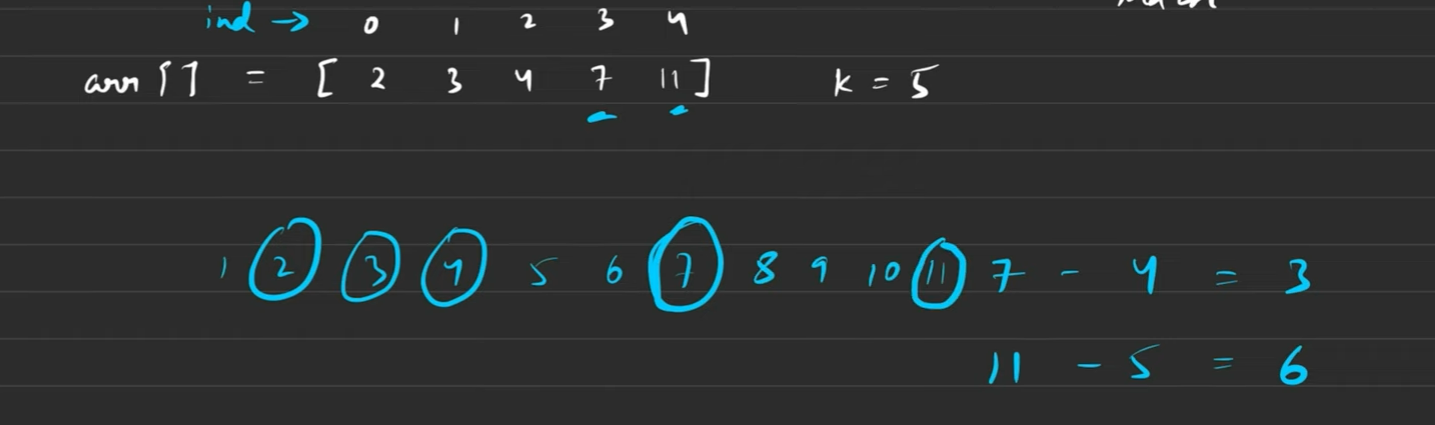 ind → 0 1 2 3 4
arr [] = [ 2 3 4 7 11 ] k = 5
1 2 3 4 5 6 7 8 9 10 11 7 - 4 = 3
11 - 5 = 6